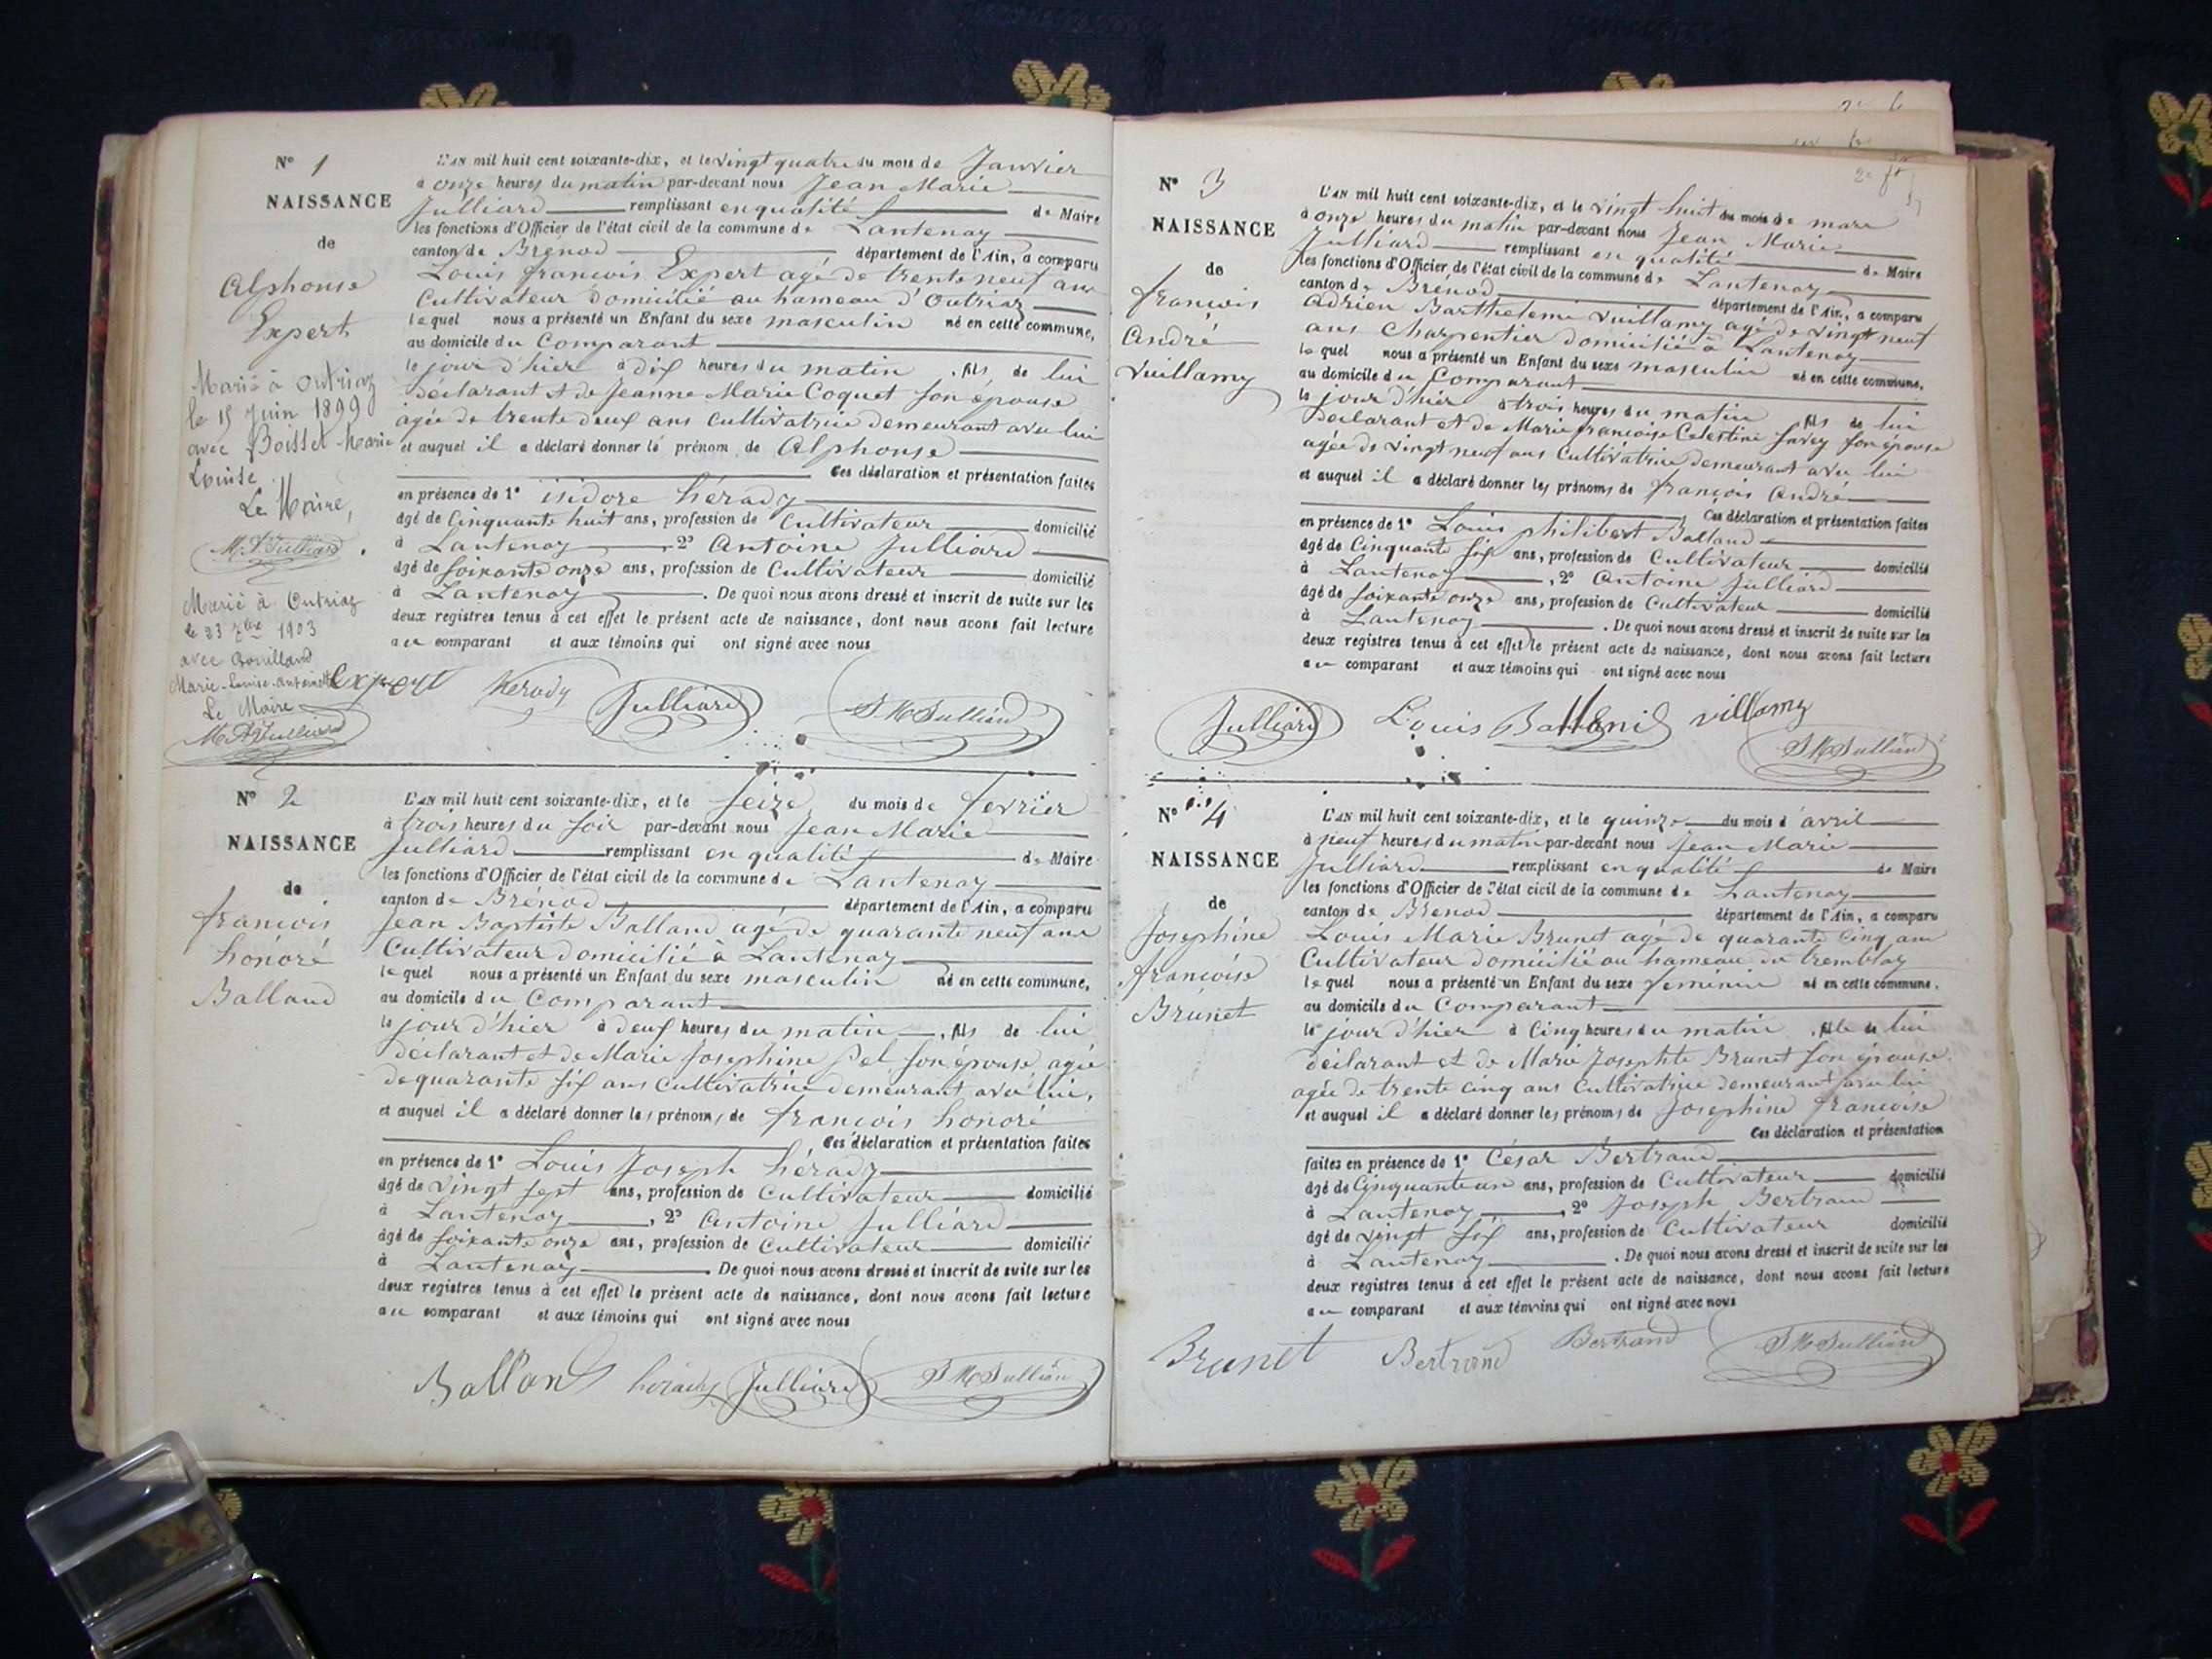 N° 1
NAISSANCE
de
Alphonse
Expert
Marié à Outriaz
le 15 Juin 1899
avec Boisset Marie
Louise
Le Maire,
Marié à Outriaz
le 23 7bre 1903
avec
Marie-Louise-Antoinette
Le Maire
L'AN mil huit cent soixante-dix, et le vingt quatre du mois de Janvier
à onze heures du matin par-devant nous Jean Marie
Julliard remplissant en qualité de Maire
les fonctions d'Officier de l'état civil de la commune de Lantenay
canton de Brénod département de l'Ain, a comparu
Louis francois Expert agé de trente neuf ans
Cultivateur domicilié au hameau d'Outriaz
lequel nous a présenté un Enfant du sexe masculin né en cette commune,
au domicile du Comparant
le jour d'hier à dix heures du matin, fils de lui
déclarant et de Jeanne Marie Coquet son épouse
agée de trente deux ans cultivatrice demeurant avec lui
et auquel il a déclaré donner le prénom de Alphonse
Ces déclaration et présentation faites
en présence de 1° isidore hérady
âgé de Cinquante huit ans, profession de Cultivateur domicilié
à Lantenay, 2° Antoine Julliard
âgé de soixante onze ans, profession de Cultivateur domicilié
à Lantenay. De quoi nous avons dressé et inscrit de suite sur les
deux registres tenus à cet effet le présent acte de naissance, dont nous avons fait lecture
au comparant et aux témoins qui ont signé avec nous
Expert herady Julliard J M Julliard
N° 2
NAISSANCE
de
francois
honoré
Balland
L'AN mil huit cent soixante-dix, et le seize du mois de fevrier
à trois heures du soir par-devant nous Jean Marie
Julliard remplissant en qualité de Maire
les fonctions d'Officier de l'état civil de la commune de Lantenay
canton de Brénod département de l'Ain, a comparu
Jean Baptiste Balland agé de quarante neuf ans
Cultivateur domicilié à Lantenay
lequel nous a présenté un Enfant du sexe masculin né en cette commune,
au domicile du Comparant
le jour d'hier à deux heures du matin, fils de lui
déclarant et de Marie Josephine Pel son épouse agée
de quarante six ans cultivatrice demeurant avec lui,
et auquel il a déclaré donner les prénoms de françois honoré
Ces déclaration et présentation faites
en présence de 1° Louis Joseph hérady
âgé de vingt sept ans, profession de Cultivateur domicilié
à Lantenay, 2° Antoine Julliard
âgé de soixante onze ans, profession de Cultivateur domicilié
à Lantenay. De quoi nous avons dressé et inscrit de suite sur les
deux registres tenus à cet effet le présent acte de naissance, dont nous avons fait lecture
au comparant et aux témoins qui ont signé avec nous
Balland herady Julliard J M Julliard
N° 3
NAISSANCE
de
françois
André
Vuillamy
L'AN mil huit cent soixante-dix, et le vingt huit du mois de mars
à onze heures du matin par-devant nous Jean Marie
Julliard remplissant en qualité de Maire
les fonctions d'Officier de l'état civil de la commune de Lantenay
canton de Brénod département de l'Ain, a comparu
Adrien Barthelemi Vuillamy agé de vingt neuf
ans Charpentier domicilié à Lantenay
lequel nous a présenté un Enfant du sexe masculin né en cette commune,
au domicile du Comparant
le jour d'hier à trois heures du matin fils de lui
déclarant et de Marie françoise Celestine Savey son épouse
agée de vingt neuf ans Cultivatrice demeurant avec lui
et auquel il a déclaré donner les prénoms de françois André
Ces déclaration et présentation faites
en présence de 1° Louis philibert Balland
âgé de Cinquante six ans, profession de Cultivateur domicilié
à Lantenay, 2° Antoine Julliard
âgé de soixante onze ans, profession de Cultivateur domicilié
à Lantenay. De quoi nous avons dressé et inscrit de suite sur les
deux registres tenus à cet effet le présent acte de naissance, dont nous avons fait lecture
au comparant et aux témoins qui ont signé avec nous
Julliard Louis Balland villamy
J M Julliard
N° 4
NAISSANCE
de
Josephine
francoise
Brunet
L'AN mil huit cent soixante-dix, et le quinze du mois d'avril
à neuf heures du matin par-devant nous Jean Marie
Julliard remplissant en qualité de Maire
les fonctions d'Officier de l'état civil de la commune de Lantenay
canton de Brenod département de l'Ain, a comparu
Louis Marie Brunet agé de quarante cinq ans
Cultivateur domicilié au hameau du tremblay
lequel nous a présenté un Enfant du sexe feminin né en cette commune,
au domicile du Comparant
le jour d'hier à Cinq heures du matin, fille de lui
déclarant et de Marie Josephte Brunet son épouse
agée de trente cinq ans Cultivatrice demeurant avec lui
et auquel il a déclaré donner les prénoms de Josephine francoise
Ces déclaration et présentation
faites en présence de 1° César Bertrand
âgé de Cinquante un ans, profession de Cultivateur domicilié
à Lantenay, 2° Joseph Bertrand
âgé de vingt six ans, profession de Cultivateur domicilié
à Lantenay. De quoi nous avons dressé et inscrit de suite sur les
deux registres tenus à cet effet le présent acte de naissance, dont nous avons fait lecture
au comparant et aux témoins qui ont signé avec nous
Brunet Bertrand Bertrand J M Julliard